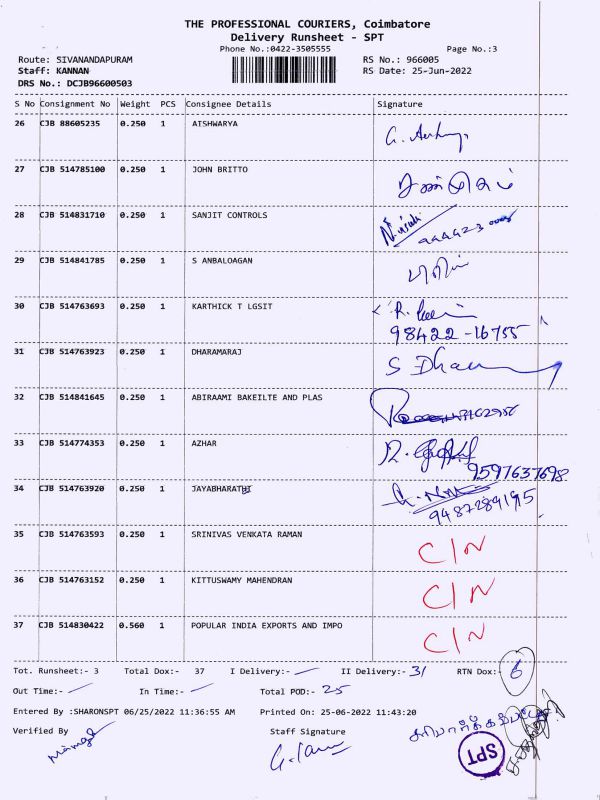 THE PROFESSIONAL COURIERS, Coimbatore
Delivery Runsheet - SPT
Phone No.:0422-3505555 Page No.:3
Route: SIVANANDAPURAM RS No.: 966005
Staff: KANNAN RS Date: 25-Jun-2022
DRS No.: DCJB96600503
S No Consignment No Weight PCS Consignee Details Signature
26 CJB 88605235 0.250 1 AISHWARYA
27 CJB 514785100 0.250 1 JOHN BRITTO
28 CJB 514831710 0.250 1 SANJIT CONTROLS
29 CJB 514841785 0.250 1 S ANBALOAGAN
30 CJB 514763693 0.250 1 KARTHICK T LGSIT
98422-16755
31 CJB 514763923 0.250 1 DHARAMARAJ
32 CJB 514841645 0.250 1 ABIRAAMI BAKEILTE AND PLAS
33 CJB 514774353 0.250 1 AZHAR
9597637698
34 CJB 514763920 0.250 1 JAYABHARATHI
9487289195
35 CJB 514763593 0.250 1 SRINIVAS VENKATA RAMAN C/N
36 CJB 514763152 0.250 1 KITTUSWAMY MAHENDRAN C/N
37 CJB 514830422 0.560 1 POPULAR INDIA EXPORTS AND IMPO C/N
Tot. Runsheet:- 3 Total Dox:- 37 I Delivery:- II Delivery:- 31 RTN Dox:- 6
Out Time:- In Time:- Total POD:- 25
Entered By :SHARONSPT 06/25/2022 11:36:55 AM Printed On: 25-06-2022 11:43:20
Verified By Staff Signature
SPT